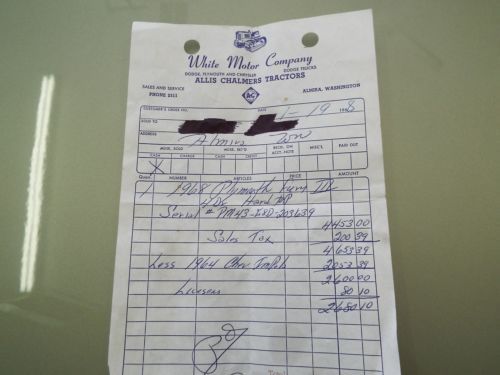 White Motor Company
DODGE, PLYMOUTH AND CHRYSLER
DODGE TRUCKS
ALLIS CHALMERS TRACTORS
SALES AND SERVICE
PHONE 2511
AC
ALMIRA, WASHINGTON
CUSTOMER'S ORDER NO.
DATE 1-19 1968
SOLD TO
ADDRESS Almira Wn
MDSE. SOLD MDSE. RET'D. RECD. ON ACCT.-NOTE MISC'L PAID OUT
CASH CHARGE CASH CHARGE
QUAN. NUMBER ARTICLES PRICE
1 1968 Plymouth Fury III
4 Dr Hard top
Serial # PM43
4453 00
Sales Tax 200 39
4653 39
Less 1964 Chev Impala 2053 39
2600 00
License 80 10
2680 10
Pd